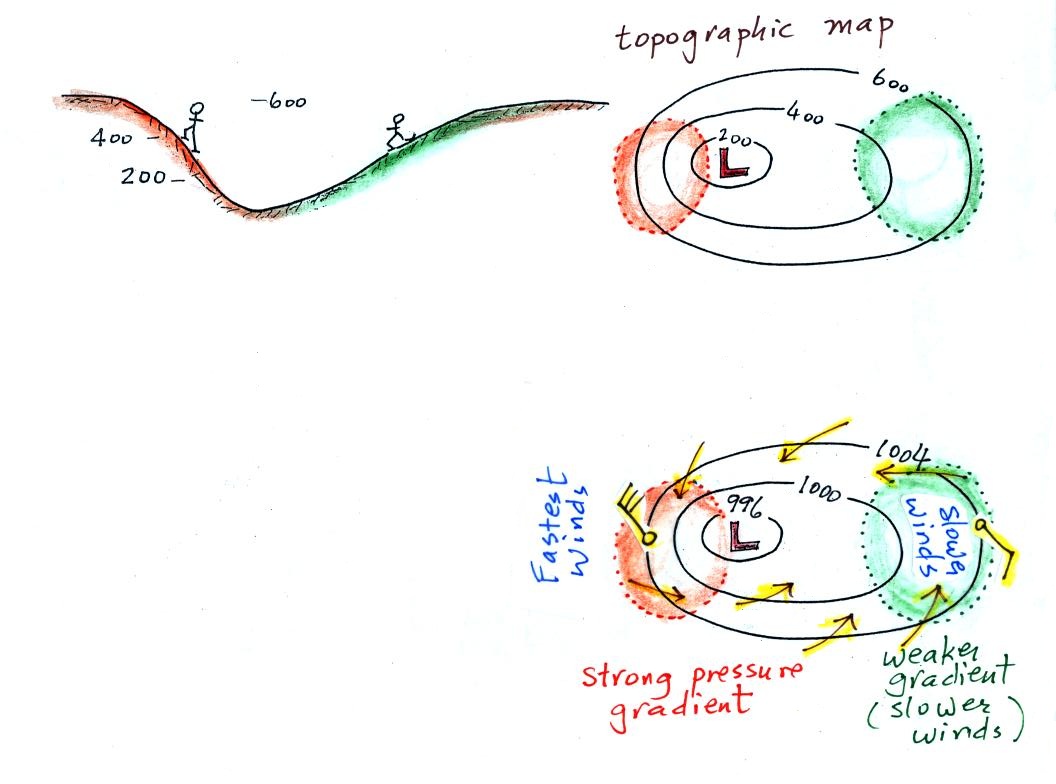 topographic map
-600
400 -
200 -
600
400
200
L
1004
1000
996
L
Fastest
winds
slower
winds
strong pressure
gradient
weaker
gradient
(slower
winds)